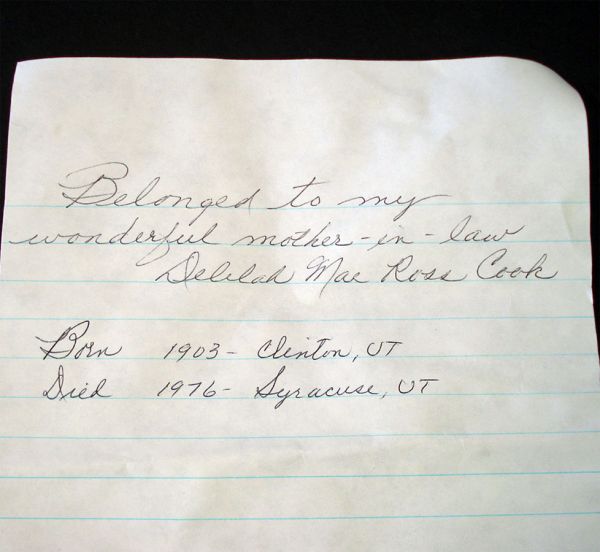 Belonged to my
wonderful mother-in-law
Delilah Mae Ross Cook
Born 1903- Clinton, UT
Died 1976- Syracuse, UT